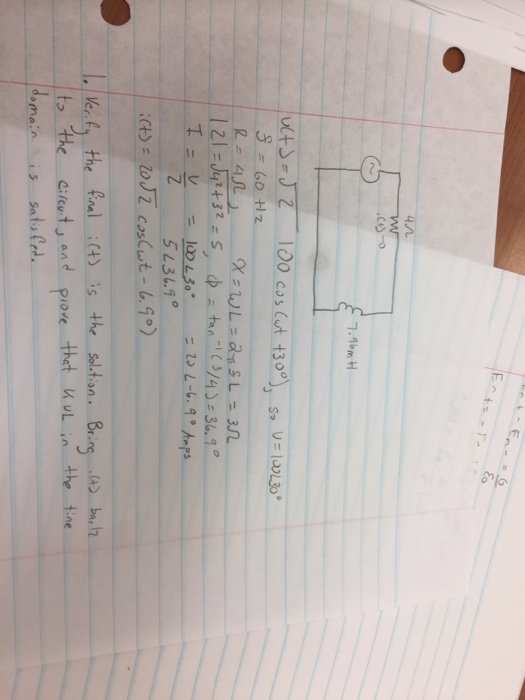 4Ω
i(t)→
~
7.96mH
v(t) = √2 100 cos(ωt +30°), so V=100∠30°
f = 60 Hz
R = 4Ω, X = ωL = 2π f L = 3Ω
|Z| = √4²+3² = 5, φ = tan⁻¹(3/4) = 36.9°
I = V/Z = 100∠30°/5∠36.9° = 20∠-6.9° Amps
i(t) = 20√2 cos(ωt - 6.9°)
1. Verify the final i(t) is the solution. Bring i(t) back
to the circuit, and prove that KVL in the time
domain is satisfied.